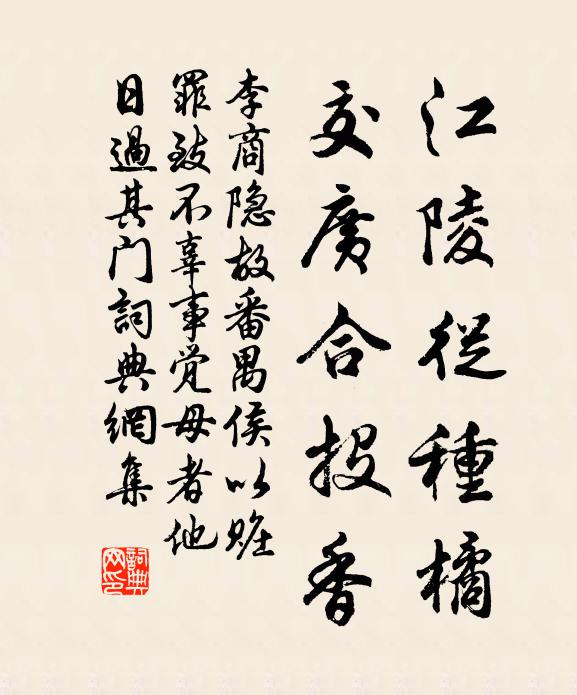 江陵從種橘
交廣合投香
李商隐故番禺侯以賍
罪致不辜事觉母者他
日過其门詞典網集
詞典網印